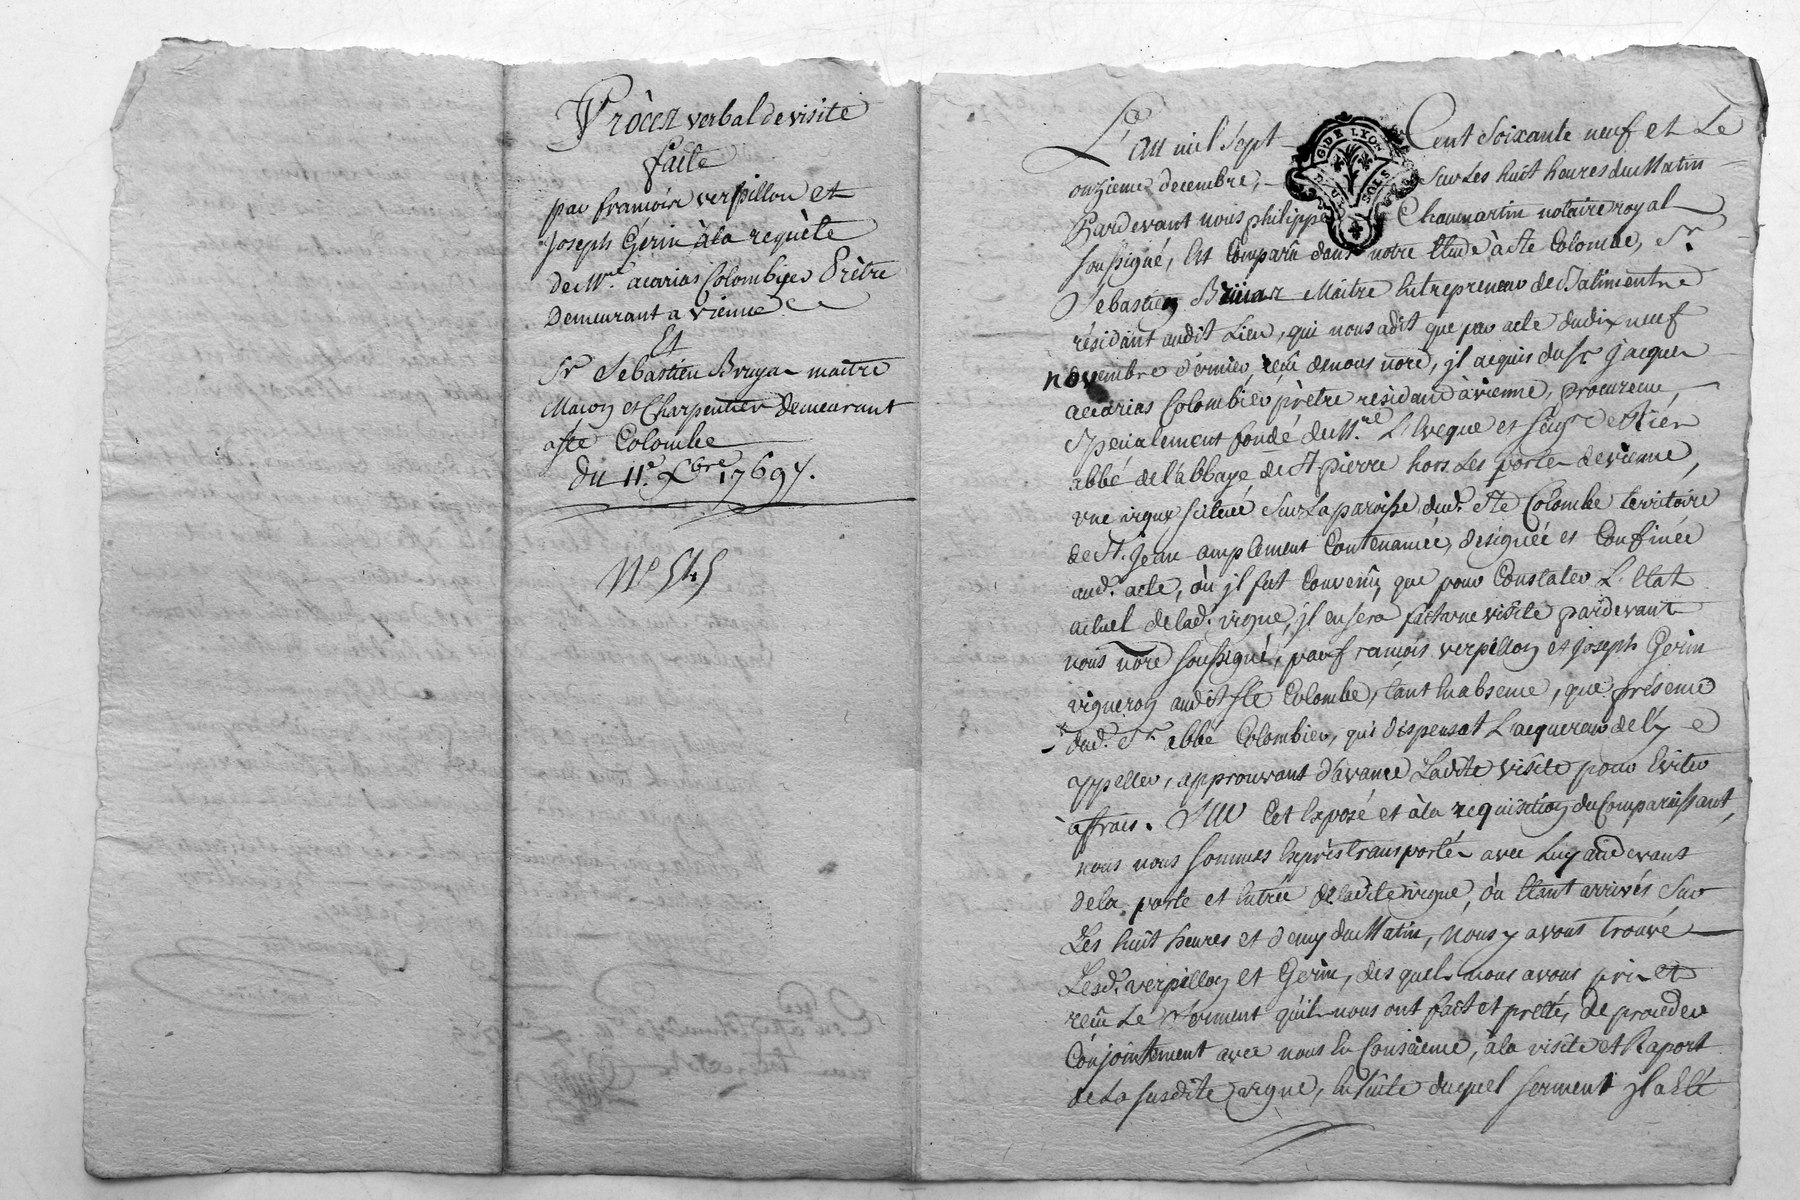 Procez verbal de visite
faite
par francois verpillon et
Joseph Gerin à la requête
de Mre. acarias Colombier Prêtre
Demeurant a vienne
Et
Sr Sebastien Bruyas maitre
Macon et Charpentier demeurant
a Ste Colombe
du 11e. Xbre 1769.
No 545
L'an mil Sept Cent Soixante neuf et Le
onzieme decembre, Sur Les huit heures du Matin
Pardevant nous philippe Chaumartin notaire royal
soussigné, Est Comparû dans notre Etude à Ste Colombe, Sr.
Sebastien Bruias Maitre Entrepreneur de Batimentz
résidant audit Lieu, qui nous a dit que par acte du dix neuf
novembre dernier, reçû de nous nore, jl acquis du Sr Jacques
accarias Colombier prêtre residand à vienne, procureur
Specialement fondé de Mre. L'Eveque et Seigr de Riez
abbé de l'abbaye de St pierre hors Les portes de vienne,
une vigne située Sur La paroisse dud. Ste Colombe territoire
de St. Jean amplement Contenancée, designée et Confinée
aud. acte, où jl fut Convenû que pour Constater L'Etat
actuel de lad. vigne, jl en sera fait une visite pardevant
nous nore soussigné, par francois verpillon et Joseph Gerin
vigneron audit Ste Colombe, tant En absence, que présence
dud. Sr abbé Colombier, qui dispensat L'acquereur de l'y
appeller, approuvant d'avance Ladite visite pour Eviter
à frais. Sur Cet Exposé et à la requisition du Comparaissant,
nous nous sommes Exprès transportés avec Luy au devant
de la porte et Entrée de ladite vigne, où Etant arrivés Sur
Les huit heures et demy du Matin, nous y avons trouvé
Lesd. verpillon et Gerin, des quels nous avons pris et
reçû Le Serment qu'ils nous ont fait et prêté, de proceder
Conjointement avec nous En Conscience, à la visite et Raport
de La susdite vigne, En suite duquel serment jl a Eté